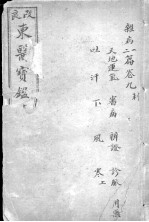 改良
東醫寶鑑
雜病二篇卷九
天地運氣 審病 辨證 診脈 用藥
吐 汗 下 風 寒上